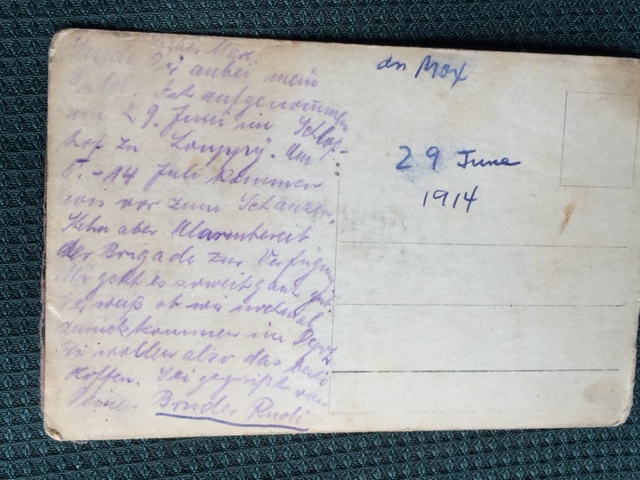 Lieber Max!
Sende Dir anbei mein
Bild. Ist aufgenommen
am 29. Juni im Schloß-
hof zu Louppy. Am
5. - 14 Juli kommen
wir vor zum Schanzen.
Stehn aber Alarmbereit
der Brigade zur Verfügung
Mir geht es soweit ganz gut.
weiß ob wir nochmal
zurückkommen im
wollen also das beste
hoffen. Sei gegrüßt von
Deinem Bruder Rudi
an Max
29 June
1914